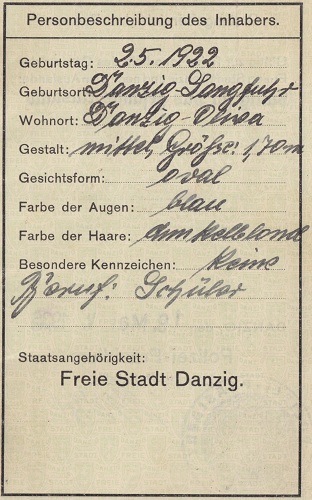 Personbeschreibung des Inhabers.
Geburtstag: 2.5.1922
Geburtsort: Danzig-Langfuhr
Wohnort: Danzig-Oliva
Gestalt: mittel, Größe: 1,70m
Gesichtsform: oval
Farbe der Augen: blau
Farbe der Haare: dunkelblond
Besondere Kennzeichen: keine
Beruf: Schüler
Staatsangehörigkeit:
Freie Stadt Danzig.